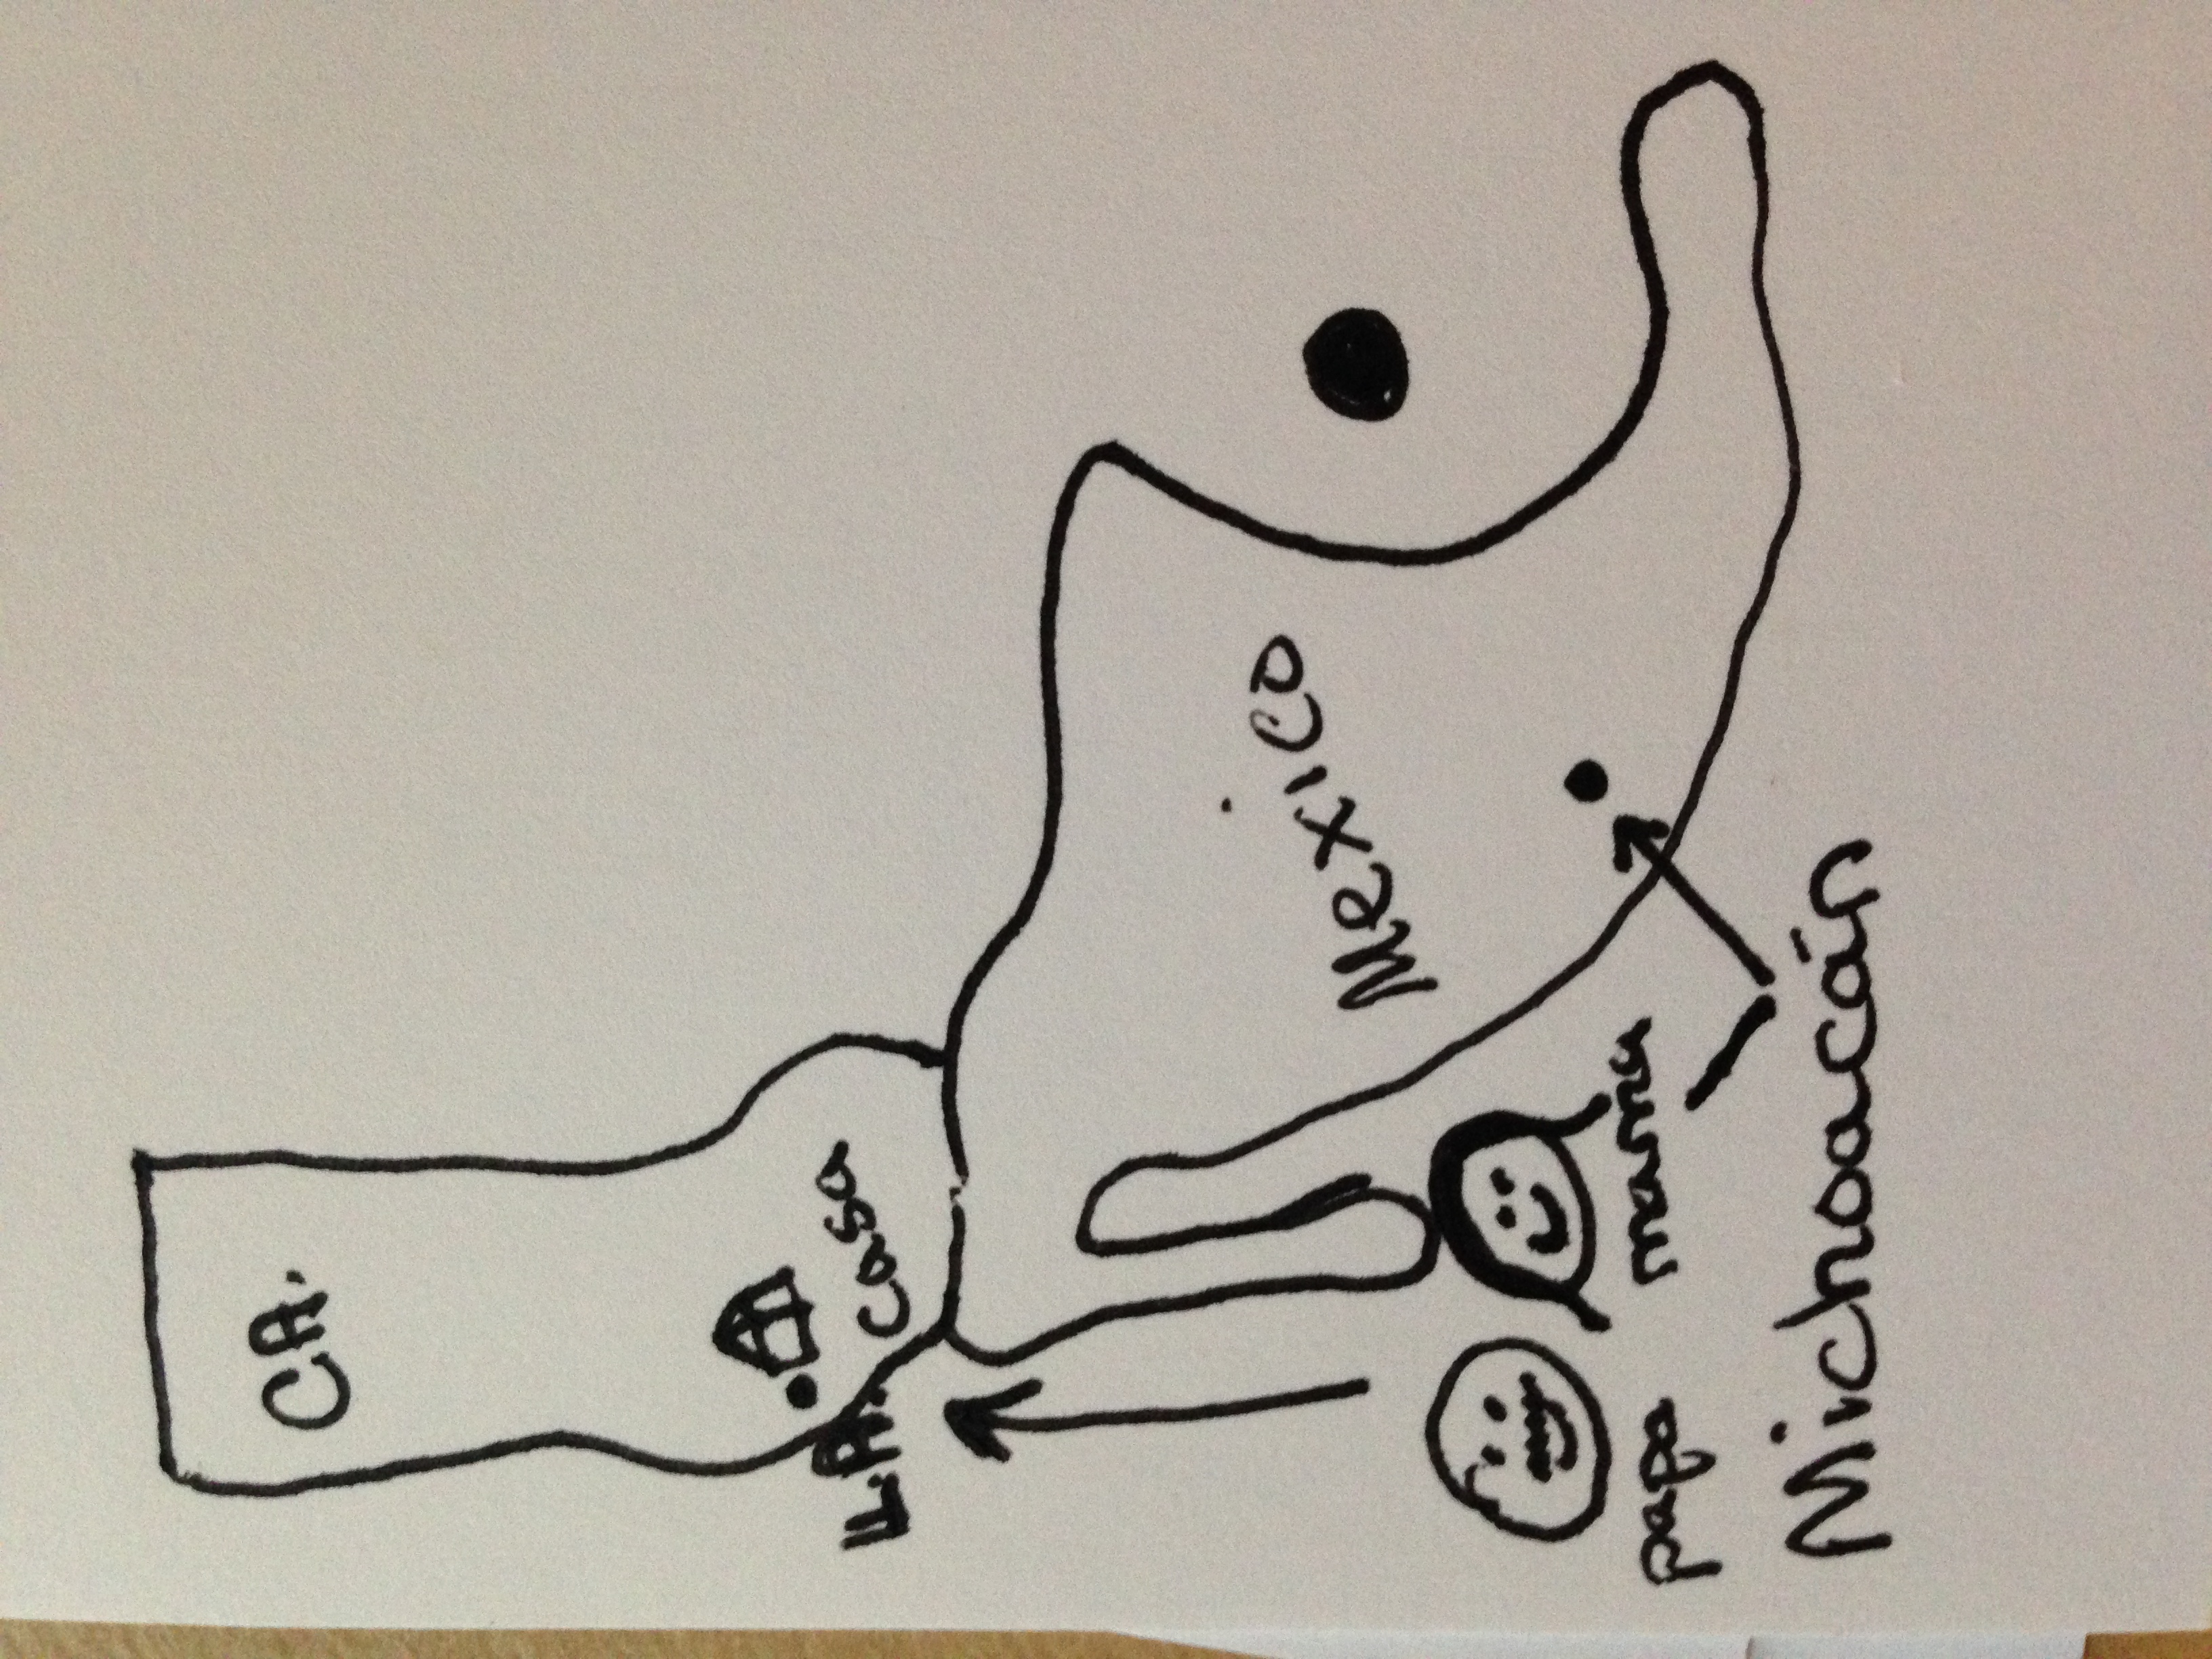 CA.
L.A.
casa
Mexico
papa
mama
Michoacán